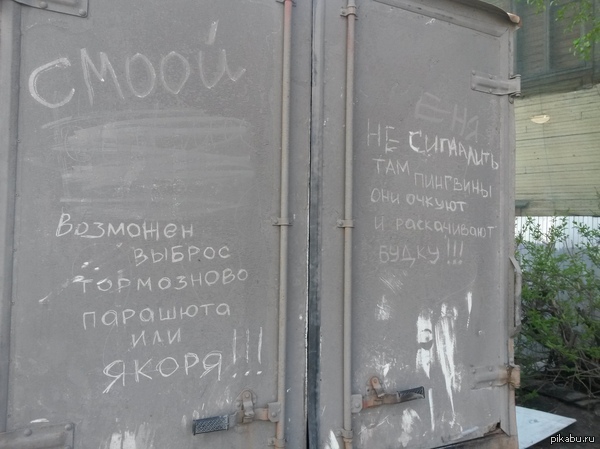 СМООЙ
Возможен
выброс
тормозново
парашюта
или
якоря!!!
Ена
НЕ СИГНАЛИТЬ
там пингвины
они очкуют
и раскачивают
будку!!!
pikabu.ru